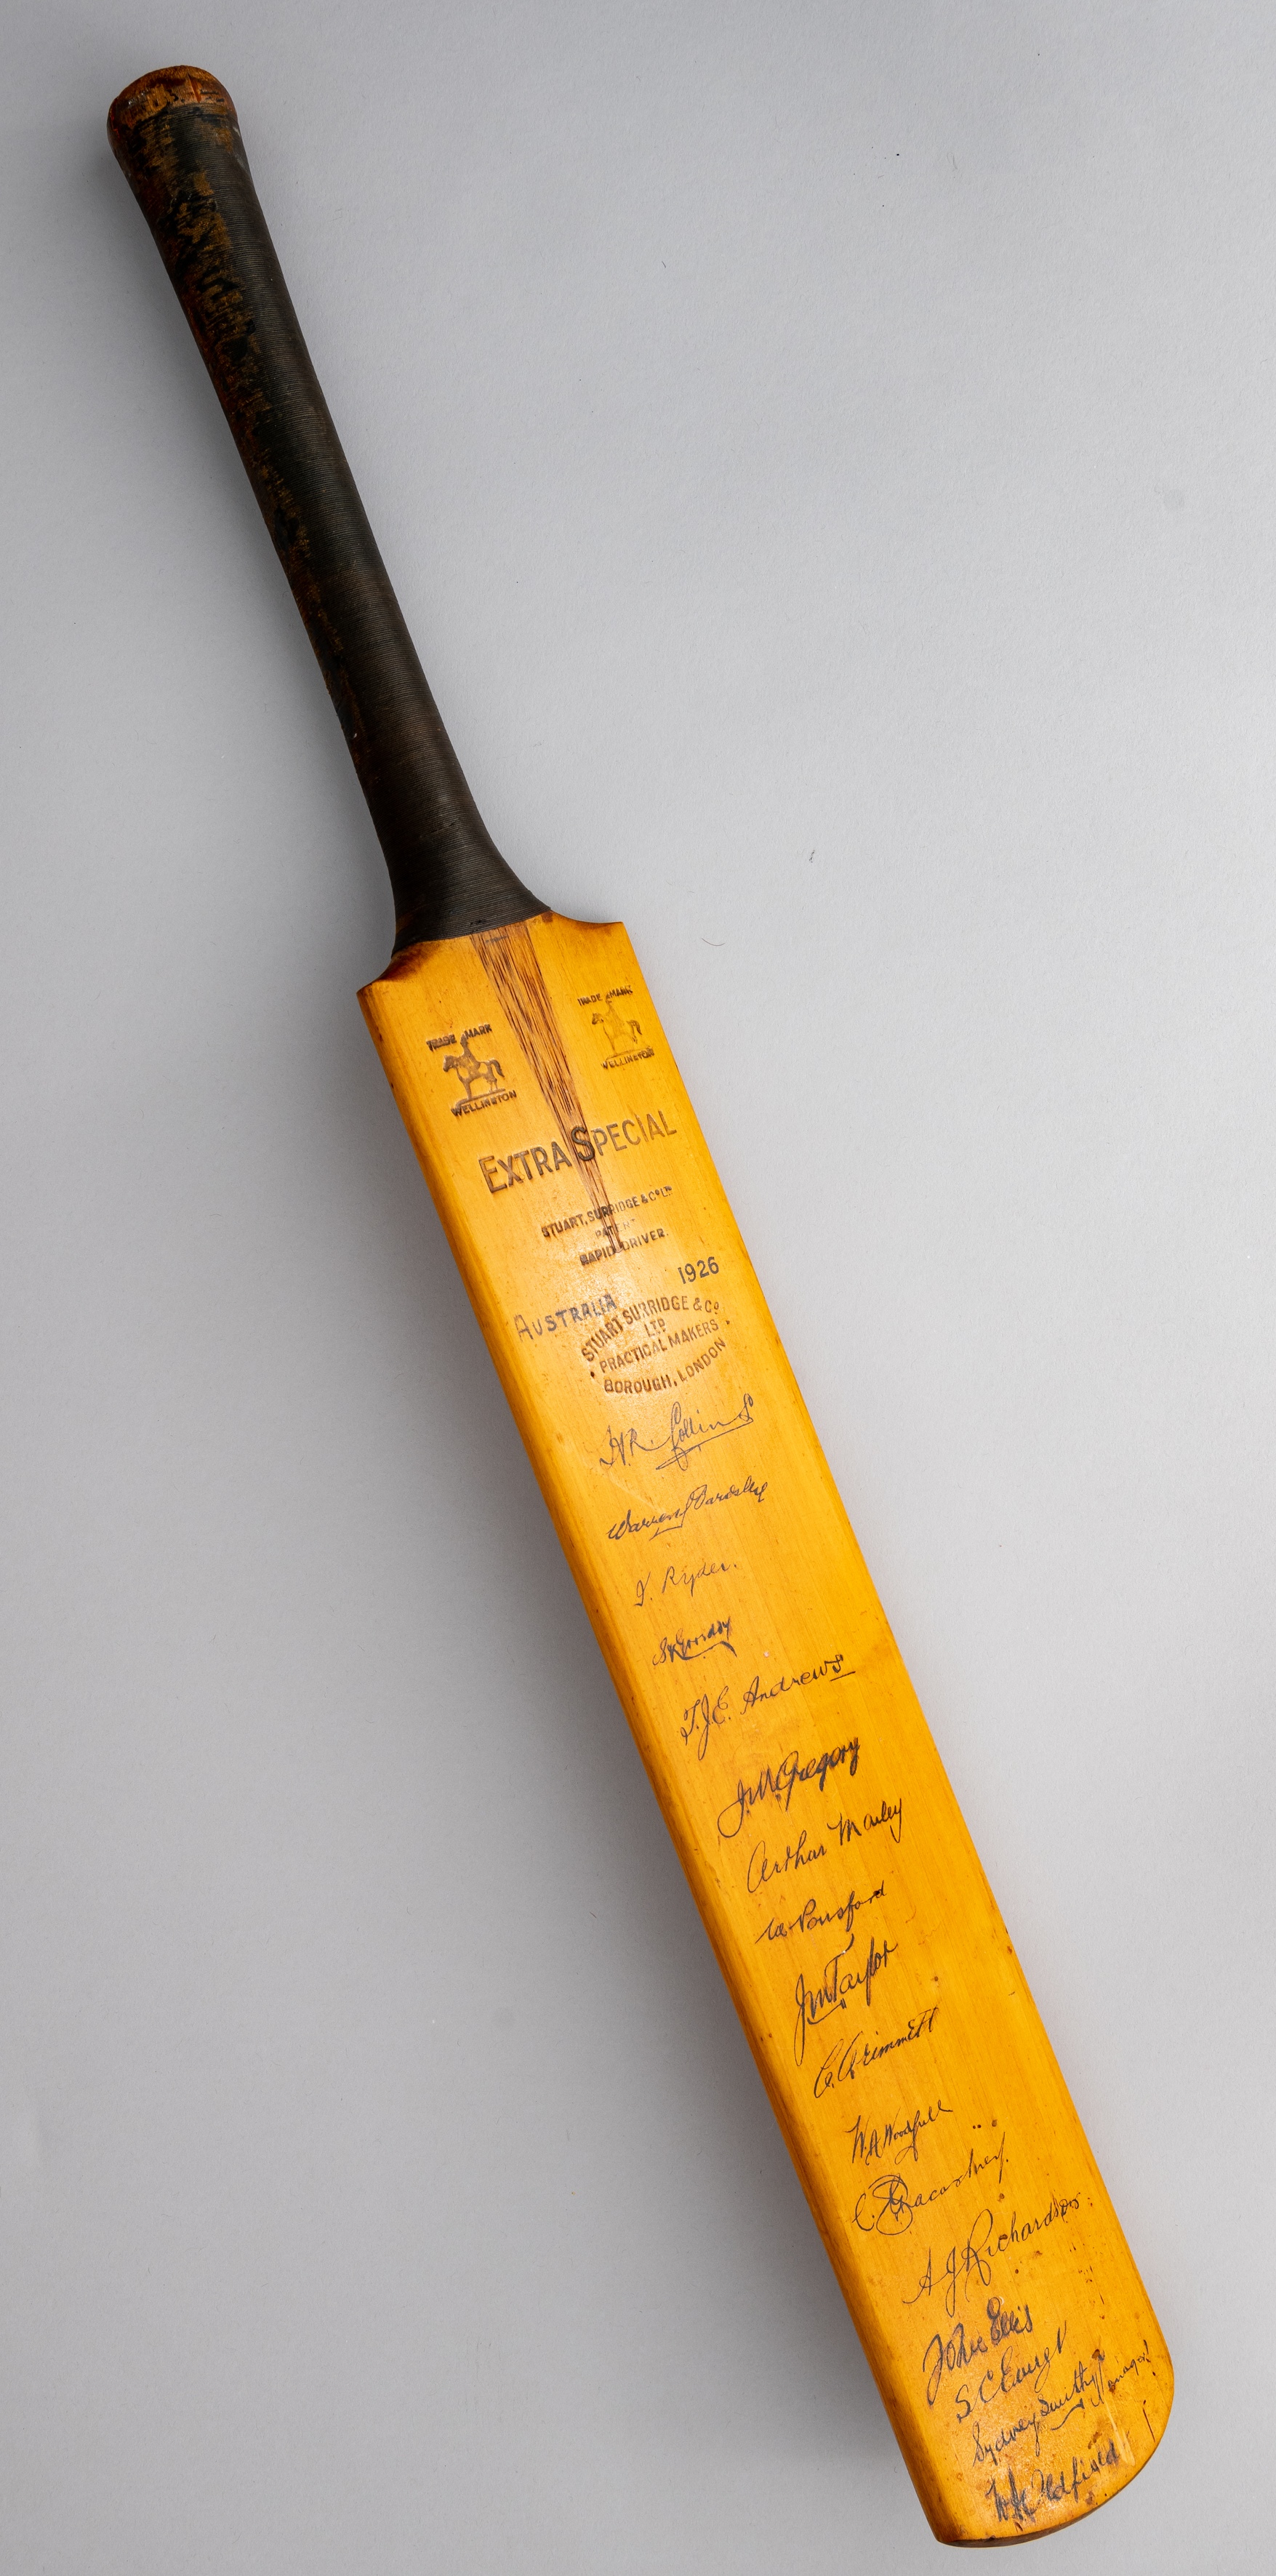 TRADE MARK
WELLINGTON
TRADE MARK
WELLINGTON
EXTRA SPECIAL
STUART, SURRIDGE & CO LTD
PATENT
RAPID DRIVER.
AUSTRALIA 1926
STUART SURRIDGE & CO
LTD
PRACTICAL MAKERS
BOROUGH, LONDON
H.L. Collins
Warren Bardsley
J. Ryder.
T.J.E. Andrews
J.M. Gregory
Arthur Mailey
W Ponsford
J M Taylor
C. Grimmett
W.A Woodfull
C. Macartney.
A J Richardson.
John Ellis
S C Everett
Sydney Smith Manager
W A Oldfield